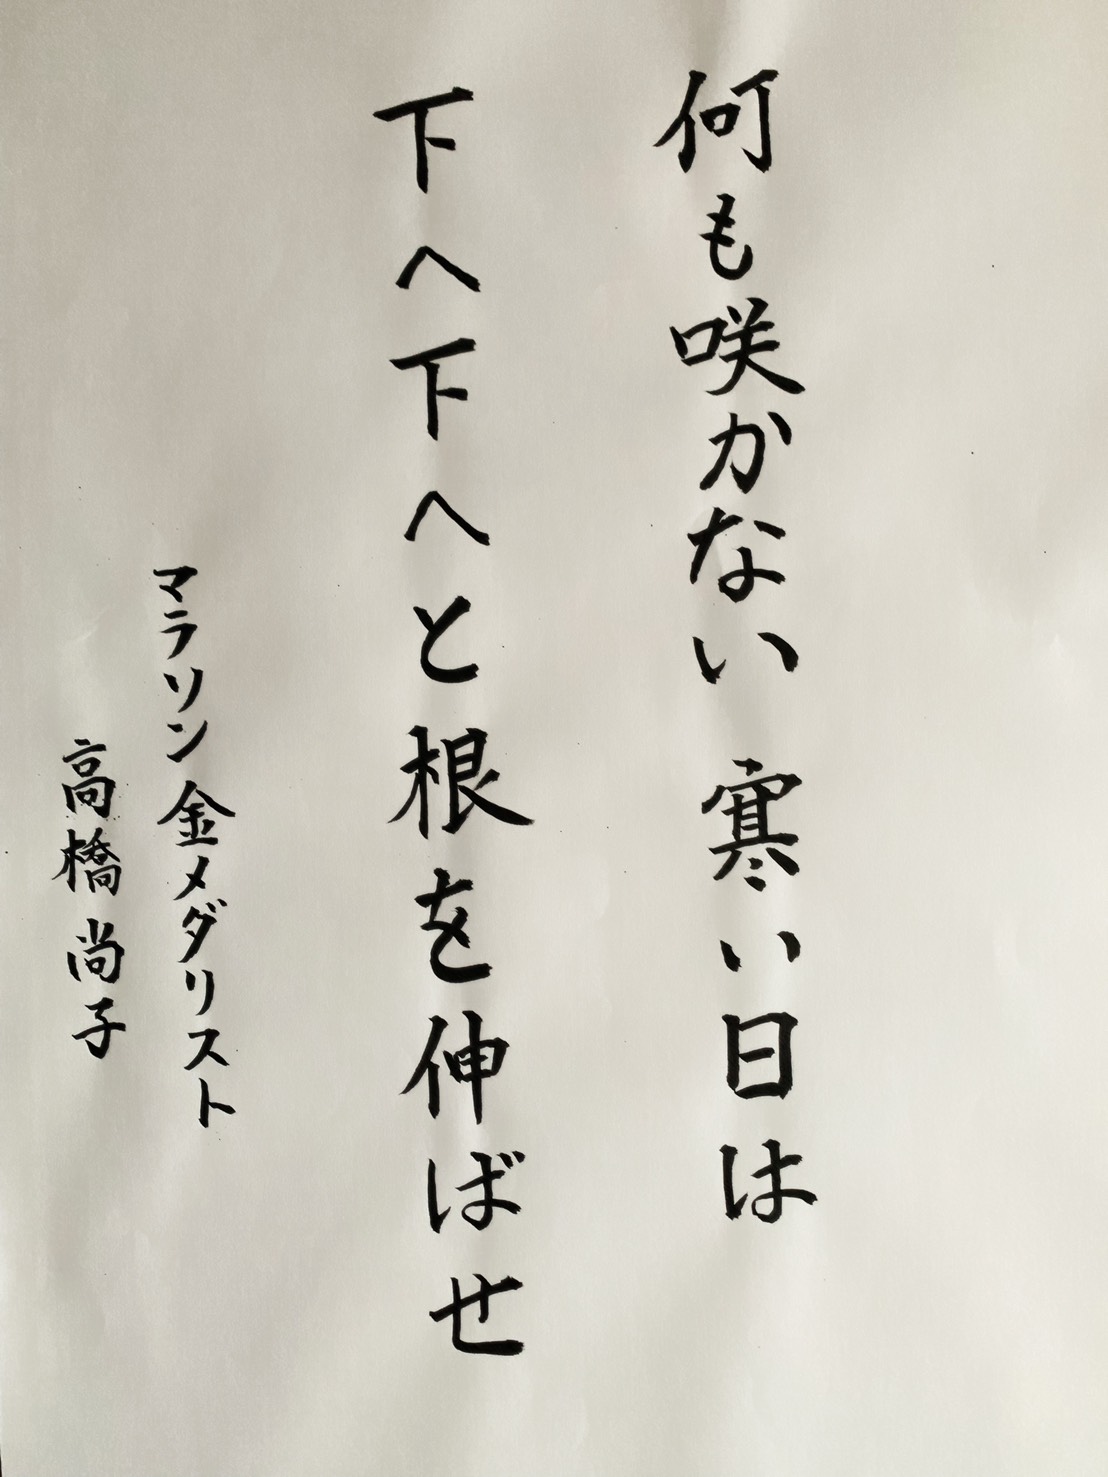 何も咲かない 寒い日は
下へ下へと根を伸ばせ
マラソン金メダリスト
高橋尚子